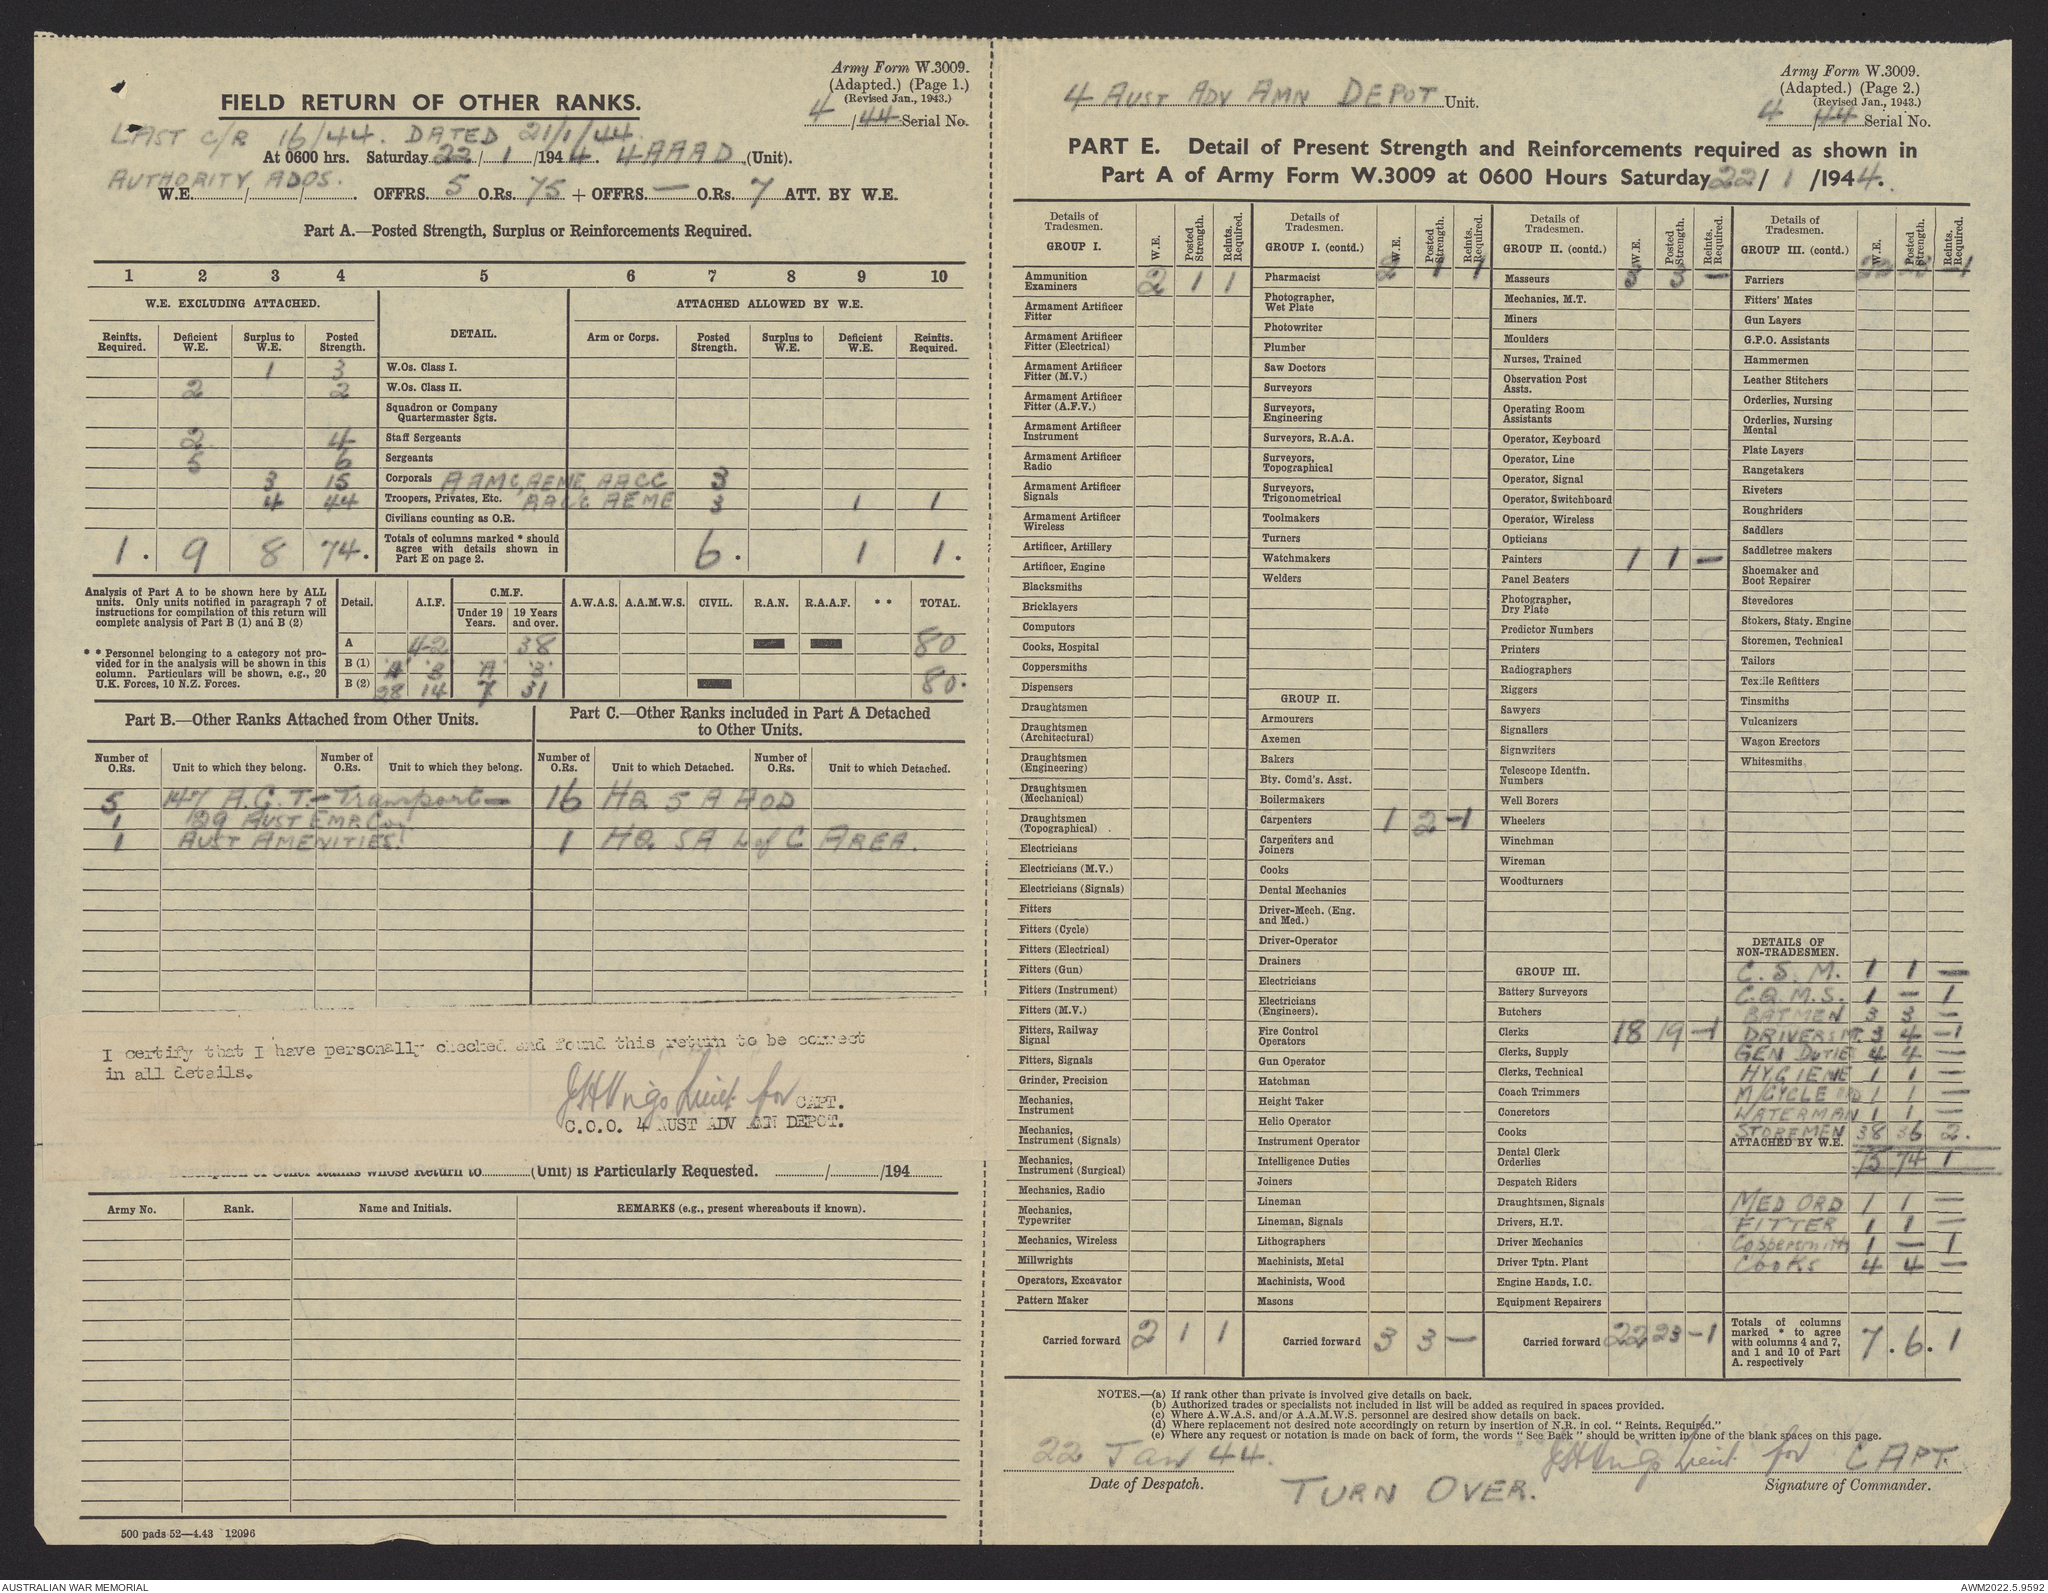 Army Form W.3009.
(Adapted.) (Page 1.)
(Revised Jan., 1943.)
4/44 Serial No.
FIELD RETURN OF OTHER RANKS.
LAST C/R 16/44. DATED 21/1/44.
At 0600 hrs. Saturday 22/1/1944. 4AAAD (Unit).
AUTHORITY ADOS.
W.E. / / . OFFRS. 5 O.Rs. 75 + OFFRS. — O.Rs. 7 ATT. BY W.E.
Part A.—Posted Strength, Surplus or Reinforcements Required.
1 2 3 4 5 6 7 8 9 10
W.E. EXCLUDING ATTACHED. DETAIL. ATTACHED ALLOWED BY W.E.
Reinfts. Required. Deficient W.E. Surplus to W.E. Posted Strength. Arm or Corps. Posted Strength. Surplus to W.E. Deficient W.E. Reinfts. Required.
1 3 W.Os. Class I.
2 2 W.Os. Class II.
Squadron or Company Quartermaster Sgts.
2 4 Staff Sergeants
5 6 Sergeants
3 15 Corporals AAMC, AEME, AACC 3
4 44 Troopers, Privates, Etc. AACC AEME 3 1 1
Civilians counting as O.R.
1. 9 8 74. Totals of columns marked * should agree with details shown in Part E on page 2. 6. 1 1.
Analysis of Part A to be shown here by ALL units. Only units notified in paragraph 7 of instructions for compilation of this return will complete analysis of Part B (1) and B (2)
* * Personnel belonging to a category not provided for in the analysis will be shown in this column. Particulars will be shown, e.g., 20 U.K. Forces, 10 N.Z. Forces.
Detail. A.I.F. C.M.F. Under 19 Years. 19 Years and over. A.W.A.S. A.A.M.W.S. CIVIL. R.A.N. R.A.A.F. * * TOTAL.
A 42 38 80
B (1) 'A' 'B' 'A' 'B'
B (2) 28 14 7 31 80.
Part B.—Other Ranks Attached from Other Units.
Part C.—Other Ranks included in Part A Detached to Other Units.
Number of O.Rs. Unit to which they belong. Number of O.Rs. Unit to which they belong. Number of O.Rs. Unit to which Detached. Number of O.Rs. Unit to which Detached.
5 147 A.G.T. — Transport — 16 HQ 5 A AOD
1 129 AUST EMP. Coy
1 AUST AMENITIES. 1 HQ 5A L of C AREA.
I certify that I have personally checked and found this return to be correct
in all details.
Lieut for CAPT.
C.O.O. 4 AUST ADV AMN DEPOT.
Part D.—Description of Other Ranks whose Return to (Unit) is Particularly Requested. / /194
Army No. Rank. Name and Initials. REMARKS (e.g., present whereabouts if known).
500 pads 52—4.43 12096
4 AUST ADV AMN DEPOT Unit.
Army Form W.3009.
(Adapted.) (Page 2.)
(Revised Jan., 1943.)
4/44 Serial No.
PART E. Detail of Present Strength and Reinforcements required as shown in
Part A of Army Form W.3009 at 0600 Hours Saturday 22/1/1944.
Details of Tradesmen. GROUP I. W.E. Posted Strength. Reints. Required.
Ammunition Examiners 2 1 1
Armament Artificer Fitter
Armament Artificer Fitter (Electrical)
Armament Artificer Fitter (M.V.)
Armament Artificer Fitter (A.F.V.)
Armament Artificer Instrument
Armament Artificer Radio
Armament Artificer Signals
Armament Artificer Wireless
Artificer, Artillery
Artificer, Engine
Blacksmiths
Bricklayers
Computors
Cooks, Hospital
Coppersmiths
Dispensers
Draughtsmen
Draughtsmen (Architectural)
Draughtsmen (Engineering)
Draughtsmen (Mechanical)
Draughtsmen (Topographical)
Electricians
Electricians (M.V.)
Electricians (Signals)
Fitters
Fitters (Cycle)
Fitters (Electrical)
Fitters (Gun)
Fitters (Instrument)
Fitters (M.V.)
Fitters, Railway Signal
Fitters, Signals
Grinder, Precision
Mechanics, Instrument
Mechanics, Instrument (Signals)
Mechanics, Instrument (Surgical)
Mechanics, Radio
Mechanics, Typewriter
Mechanics, Wireless
Millwrights
Operators, Excavator
Pattern Maker
Carried forward 2 1 1
Details of Tradesmen. GROUP I. (contd.) W.E. Posted Strength. Reints. Required.
Pharmacist 2 1 1
Photographer, Wet Plate
Photowriter
Plumber
Saw Doctors
Surveyors
Surveyors, Engineering
Surveyors, R.A.A.
Surveyors, Topographical
Surveyors, Trigonometrical
Toolmakers
Turners
Watchmakers
Welders
GROUP II.
Armourers
Axemen
Bakers
Bty. Comd's. Asst.
Boilermakers
Carpenters 1 2 -1
Carpenters and Joiners
Cooks
Dental Mechanics
Driver-Mech. (Eng. and Med.)
Driver-Operator
Drainers
Electricians
Electricians (Engineers).
Fire Control Operators
Gun Operator
Hatchman
Height Taker
Helio Operator
Instrument Operator
Intelligence Duties
Joiners
Lineman
Lineman, Signals
Lithographers
Machinists, Metal
Machinists, Wood
Masons
Carried forward 3 3 —
Details of Tradesmen. GROUP II. (contd.) W.E. Posted Strength. Reints. Required.
Masseurs 3 3 —
Mechanics, M.T.
Miners
Moulders
Nurses, Trained
Observation Post Assts.
Operating Room Assistants
Operator, Keyboard
Operator, Line
Operator, Signal
Operator, Switchboard
Operator, Wireless
Opticians
Painters 1 1 —
Panel Beaters
Photographer, Dry Plate
Predictor Numbers
Printers
Radiographers
Riggers
Sawyers
Signallers
Signwriters
Telescope Identfn. Numbers
Well Borers
Wheelers
Winchman
Wireman
Woodturners
GROUP III.
Battery Surveyors
Butchers
Clerks 18 19 -1
Clerks, Supply
Clerks, Technical
Coach Trimmers
Concretors
Cooks
Dental Clerk Orderlies
Despatch Riders
Draughtsmen, Signals
Drivers, H.T.
Driver Mechanics
Driver Tptn. Plant
Engine Hands, I.C.
Equipment Repairers
Carried forward 22 23 -1
Details of Tradesmen. GROUP III. (contd.) W.E. Posted Strength. Reints. Required.
Farriers 22 23 -1
Fitters' Mates
Gun Layers
G.P.O. Assistants
Hammermen
Leather Stitchers
Orderlies, Nursing
Orderlies, Nursing Mental
Plate Layers
Rangetakers
Riveters
Roughriders
Saddlers
Saddletree makers
Shoemaker and Boot Repairer
Stevedores
Stokers, Staty. Engine
Storemen, Technical
Tailors
Textile Refitters
Tinsmiths
Vulcanizers
Wagon Erectors
Whitesmiths
DETAILS OF NON-TRADESMEN.
C.S.M. 1 1 —
C.Q.M.S. 1 — 1
BATMEN 3 3 —
DRIVERS MT. 3 4 -1
GEN DUTIES 4 4 —
HYGIENE 1 1 —
M/CYCLE ORD 1 1 —
WATERMAN 1 1 —
STOREMEN 38 36 2.
ATTACHED BY W.E. 75 74 1
MED ORD 1 1 —
FITTER 1 1 —
Coppersmith 1 — 1
COOKS 4 4 —
Totals of columns marked * to agree with columns 4 and 7, and 1 and 10 of Part A. respectively 7. 6. 1
NOTES.—(a) If rank other than private is involved give details on back.
(b) Authorized trades or specialists not included in list will be added as required in spaces provided.
(c) Where A.W.A.S. and/or A.A.M.W.S. personnel are desired show details on back.
(d) Where replacement not desired note accordingly on return by insertion of N.R. in col. "Reints. Required."
(e) Where any request or notation is made on back of form, the words "See Back" should be written in one of the blank spaces on this page.
22 Jan 44. Lieut for CAPT.
Date of Despatch. TURN OVER. Signature of Commander.
AUSTRALIAN WAR MEMORIAL
AWM2022.5.9592